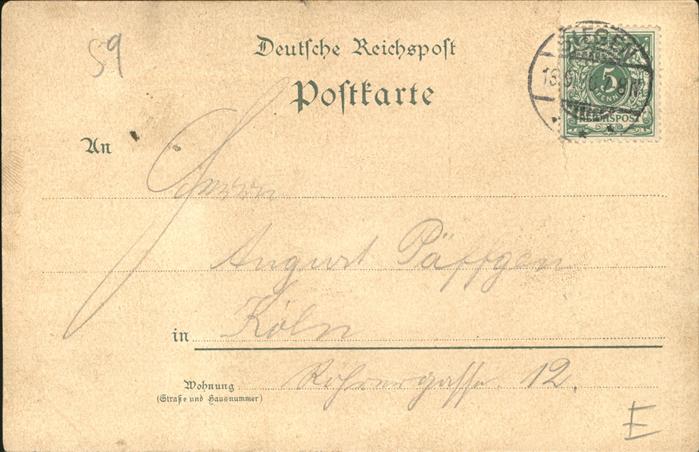 59
Deutsche Reichspost
Postkarte
SIEGEN
5
REICHSPOST
An
Herrn
August Päffgen
in Köln
Wohnung
(Straße und Hausnummer)
12.
E